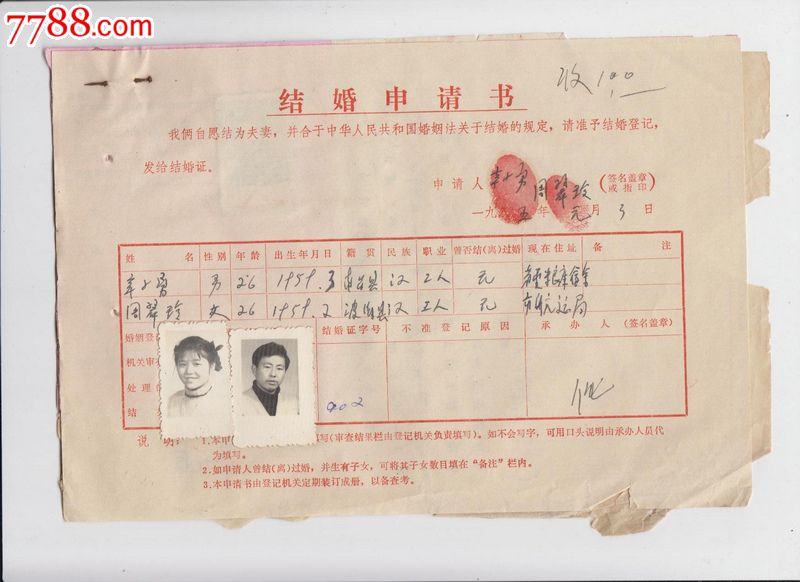 7788.com
中国收藏热线
收 1.00
结婚申请书
我俩自愿结为夫妻，并合于中华人民共和国婚姻法关于结婚的规定，请准予结婚登记，
发给结婚证。
申请人 周翠玲 (签名盖章或指印)
一九 五年 元月 3日
姓名 性别 年龄 出生年月日 籍贯 民族 职业 曾否结(离)过婚 现在住址 备注
男 26 1959.3 县 汉 工人 无
周翠玲 女 26 1959.2 县 汉 工人 无 局
婚姻登 结婚证字号 不准登记原因 承办人 (签名盖章)
机关审
处理的
结 002
说明: 1.本申 填写(审查结果栏由登记机关负责填写)。如不会写字，可用口头说明由承办人员代
为填写。
2.如申请人曾结(离)过婚，并生有子女，可将其子女数目填在“备注”栏内。
3.本申请书由登记机关定期装订成册，以备查考。